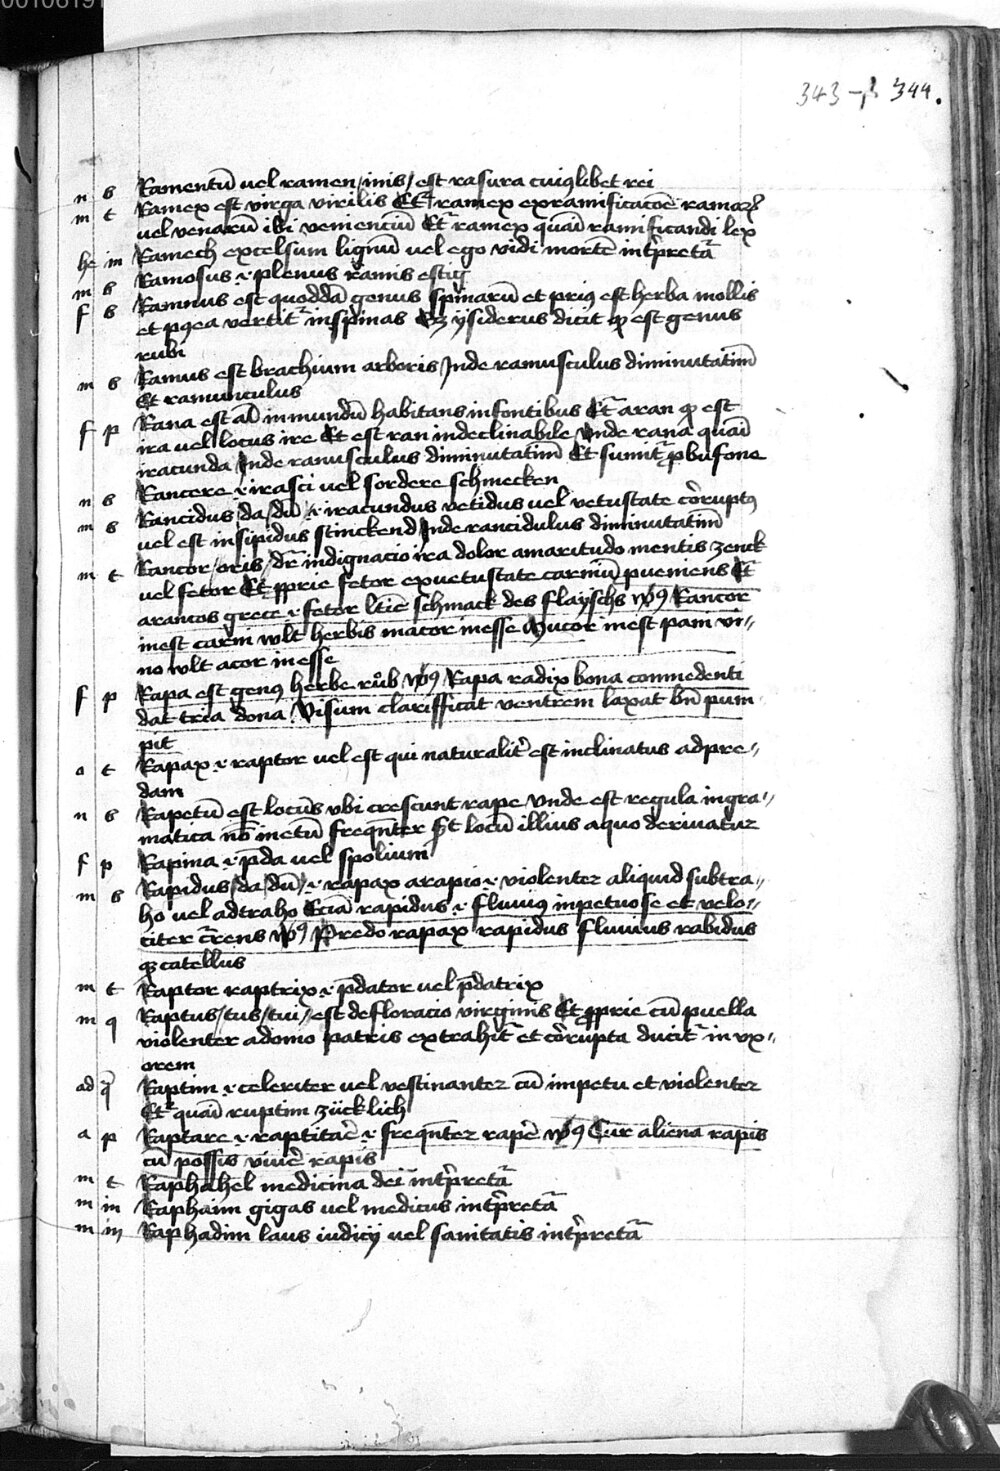 00106191
343 – 344.
n s Ramentū uel ramen/inis/ est rasura cuiuslibet rei
m t Ramex est virga virilis Et̄ ramex ex ramificacōe ramoꝝ
uel venarū ibi veniencíū Et̄ ramex quāi ramificandi lex
he in Ramech excelsum lignū uel ego vidi mortē int̉pretā
m s Ramosus .i. plenus ramis estig
f s Ramnus est quoddā genus spinarū et priꝰ est herba mollis
et pꝰea vertit̄ in spinas Sꝫ ysiderus dicit ꝙ est genus
rubi
m s Ramus est brachium arboris Inde ramusculus diminutatiuū
Et ramunculus
f p Rana est aīl inmundū habitans in fontibus Et̄ aran ꝙ est
ira uel locus ire Et est ran indeclinabile Vnde rana quāi
iracunda Inde ranusculus diminutatiuū Et sumit̄ ꝓ bufone
n s Rancere .i. irasci uel sordere schmecken
m s Rancidus/da/dū/ .i. iracundus vetidus uel vetustate cōruptꝰ
uel est insipidus stinckend Inde rancidulus diminutatiuū
m t Rancor/oris/ dr̄ indignacio ira dolor amaritudo mentis zenck
uel fetor Et ꝓprie fetor ex vetustate carniū ꝓueniens Et̄
arancos grece .i. fetor lt̄ie schmack des flayschs v̉sꝰ Rancor
inest carni vult herbis macor inesse Mucor inest pani vi//
no vult acor inesse
f p Rapa est genꝰ herbe růb v̉sꝰ Rapa radix bona comedenti
dat tria dona Visum clarifficat ventrem laxat bn̄ pum
pit
o t Rapax .i. raptor uel est qui naturalit̉ est inclinatus ad pre//
dam
n s Rapetū est locus vbi crescunt rape Vnde est regula in gra//
matica nō in etū freqn̄ter sīt locū illius a quo deriuatur
f p Rapina .i. p̄da uel spolium
m s Rapidus/da/dū/ .i. rapax a rapio .i. violenter aliquid subtra//
ho uel adtraho Eciā rapidus .i. fluuiꝰ impetuose et velo//
citer c̄rens v̉sꝰ Predo rapax rapidus fluuius rabidus
ꝙ catellus
m t Raptor raptrix .i. p̄dator uel p̄datrix
m q Raptus/tus/tui/ est defloracio virginis Et ꝓprie cū puella
violenter a domo patris extrahit̄ et cōrupta ducit̄ in vx//
orem
ad q̄ Raptim .i. celeriter uel vestinanter cū impetu et violenter
Et̄ quāi ruptim zücklich
a p Raptare .i. raptitar̄e .i. freqn̄ter raper̄e v̉sꝰ Cur aliena rapis
cū possis viuer̄e rapis
m t Raphahel medicina dei int̉pretā
m in Raphaim gigas uel medicus int̉pretā
m in Raphadim laus iudicij uel sanitatis int̉pretā